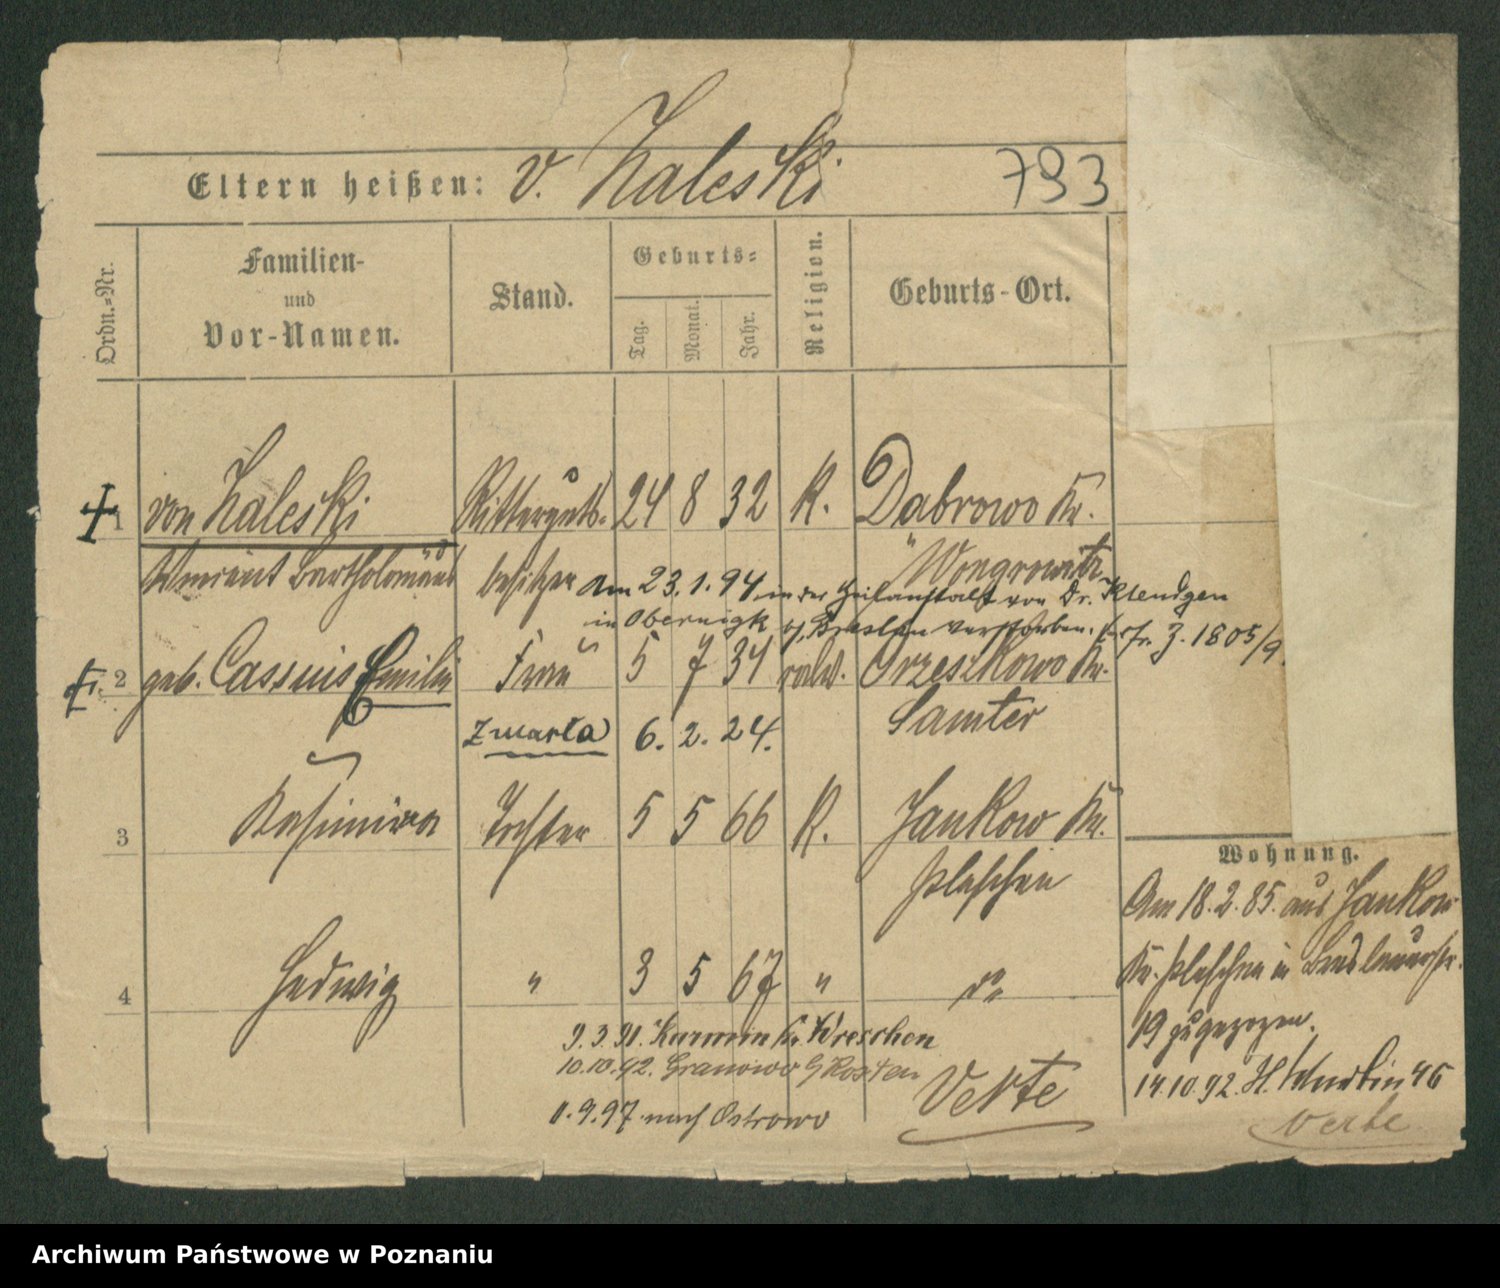 Eltern heißen: v. Zaleski 793
Ordn.=Nr.
Familien-
und
Vor-Namen.
Stand.
Geburts=
Tag.
Monat.
Jahr.
Religion.
Geburts-Ort.
1 von Zaleski Ritterguts- 24 8 32 K. Dabrowo Kr.
Bartholomäus besitzer Wongrowitz
Am 23.1.94 in der Heilanstalt von Dr. Kleudgen
in Obernigk b/ Breslau verstorben. J. 1805/9
2 geb. Cassius Emilie Frau 5 7 34 kath. Orzeszkowo Kr.
Samter
Zmarła 6. 2. 24.
3 Kasimira Tochter 5 5 66 K. Jankow Kr.
Pleschen
4 Hedwig " 3 5 67 " do
9.3.91. Kr. Wreschen
10.10.92. Granowo Kosten
11.9.97 nach Ostrowo
Verte
Wohnung.
Am 18.2.85. aus Jankow
Kr. Pleschen in Breslauerstr.
19 zugezogen.
14.10.92. St. Martin 46
verte
Archiwum Państwowe w Poznaniu